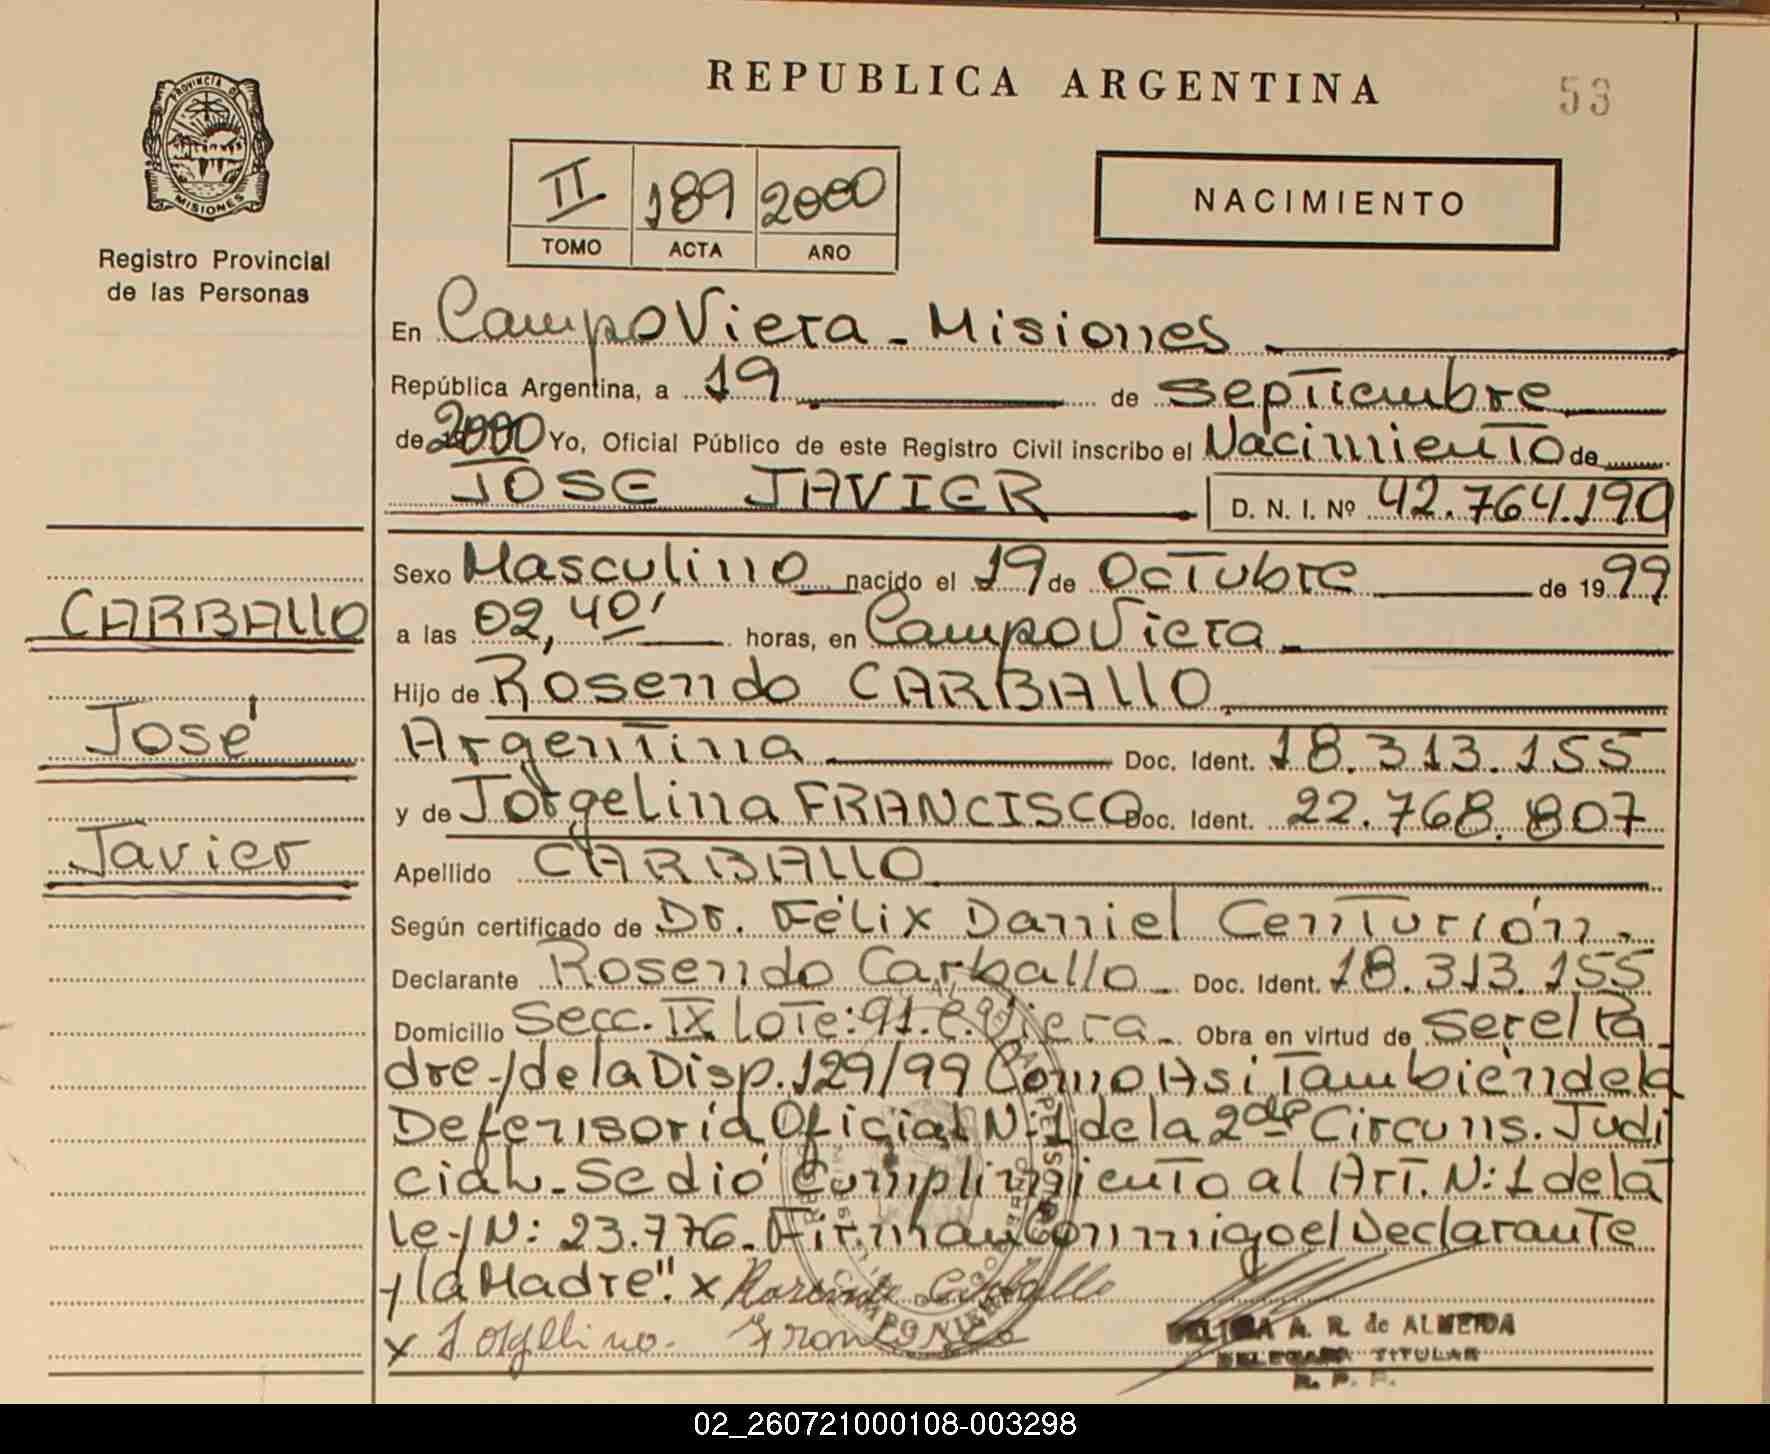 REPUBLICA ARGENTINA
53
PROVINCIA DE
MISIONES
Registro Provincial
de las Personas
II 189 2000
TOMO ACTA AÑO
NACIMIENTO
En Campo Viera - Misiones
República Argentina, a 19 de Septiembre
de 2000 Yo, Oficial Público de este Registro Civil inscribo el Nacimiento de
JOSE JAVIER D. N. I. Nº 42.764.190
Sexo Masculino nacido el 19 de Octubre de 1999
CARBALLO
a las 02,40' horas, en Campo Viera
Hijo de Rosendo CARBALLO
José
Argentina Doc. Ident. 18.313.155
y de Jorgelina FRANCISCO Doc. Ident. 22.768.807
Javier
Apellido CARBALLO
Según certificado de Dr. Félix Daniel Centurión.
Declarante Rosendo Carballo - Doc. Ident. 18.313.155
Domicilio Secc. IX lote: 91. C. Viera - Obra en virtud de Ser el Pa
dre - y de la Disp. 129/99 Como Asi También de la
Defensoría Oficial N: 1 de la 2da Circuns. Judi
cial - Se dió Cumplimiento al Art. N: 1 de la
ley N: 23.776. Firman Conmigo el Declarante
y la Madre". x Rosendo Carballo
x Jorgelina Francisco
A. R. de ALMEIDA
DELEGADA TITULAR
R. P. P.
CAMPO VIERA
02_260721000108-003298